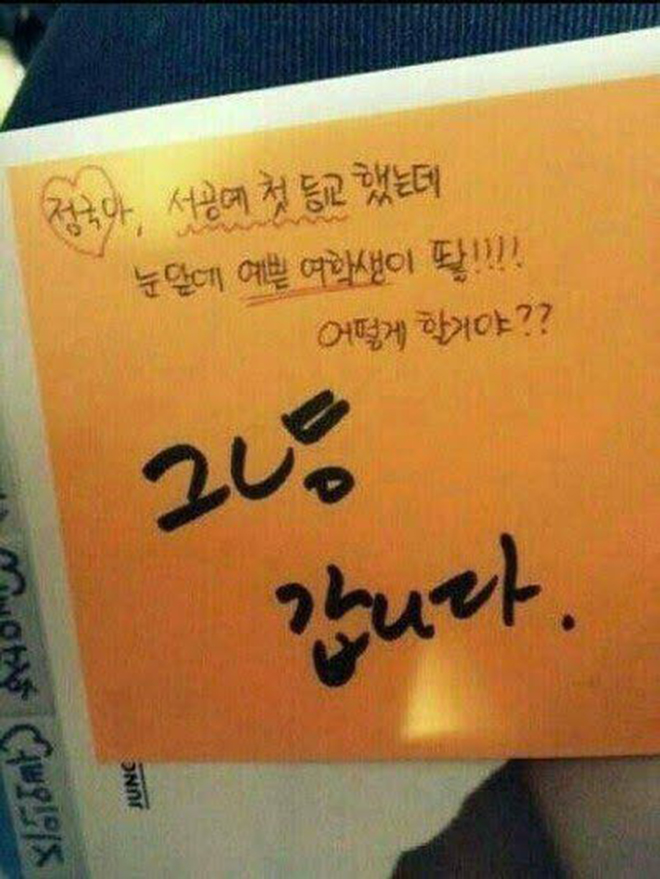 정국아, 서공예 첫 등교 했는데
눈앞에 예쁜 여학생이 딱!!!!
어떻게 할거야??
그냥
갑니다.
JUNG